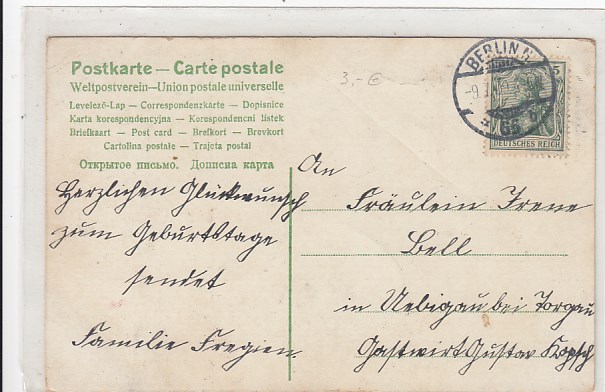 Postkarte — Carte postale
Weltpostverein — Union postale universelle
Levelező-Lap — Correspondenzkarte — Dopisnice
Karta korespondencyjna — Korespondencni listek
Briefkaart — Post card — Brefkort — Brevkort
Cartolina postale — Trajeta postal
Открытое письмо. Дописна карта
3,- €
BERLIN N.
65
DEUTSCHES REICH
Herzlichen Glückwunsch
zum Geburtstage
sendet
Familie Fregien.
An
Fräulein Irene
Bell
in Uebigau bei Torgau
Gastwirt Gustav Kopsch